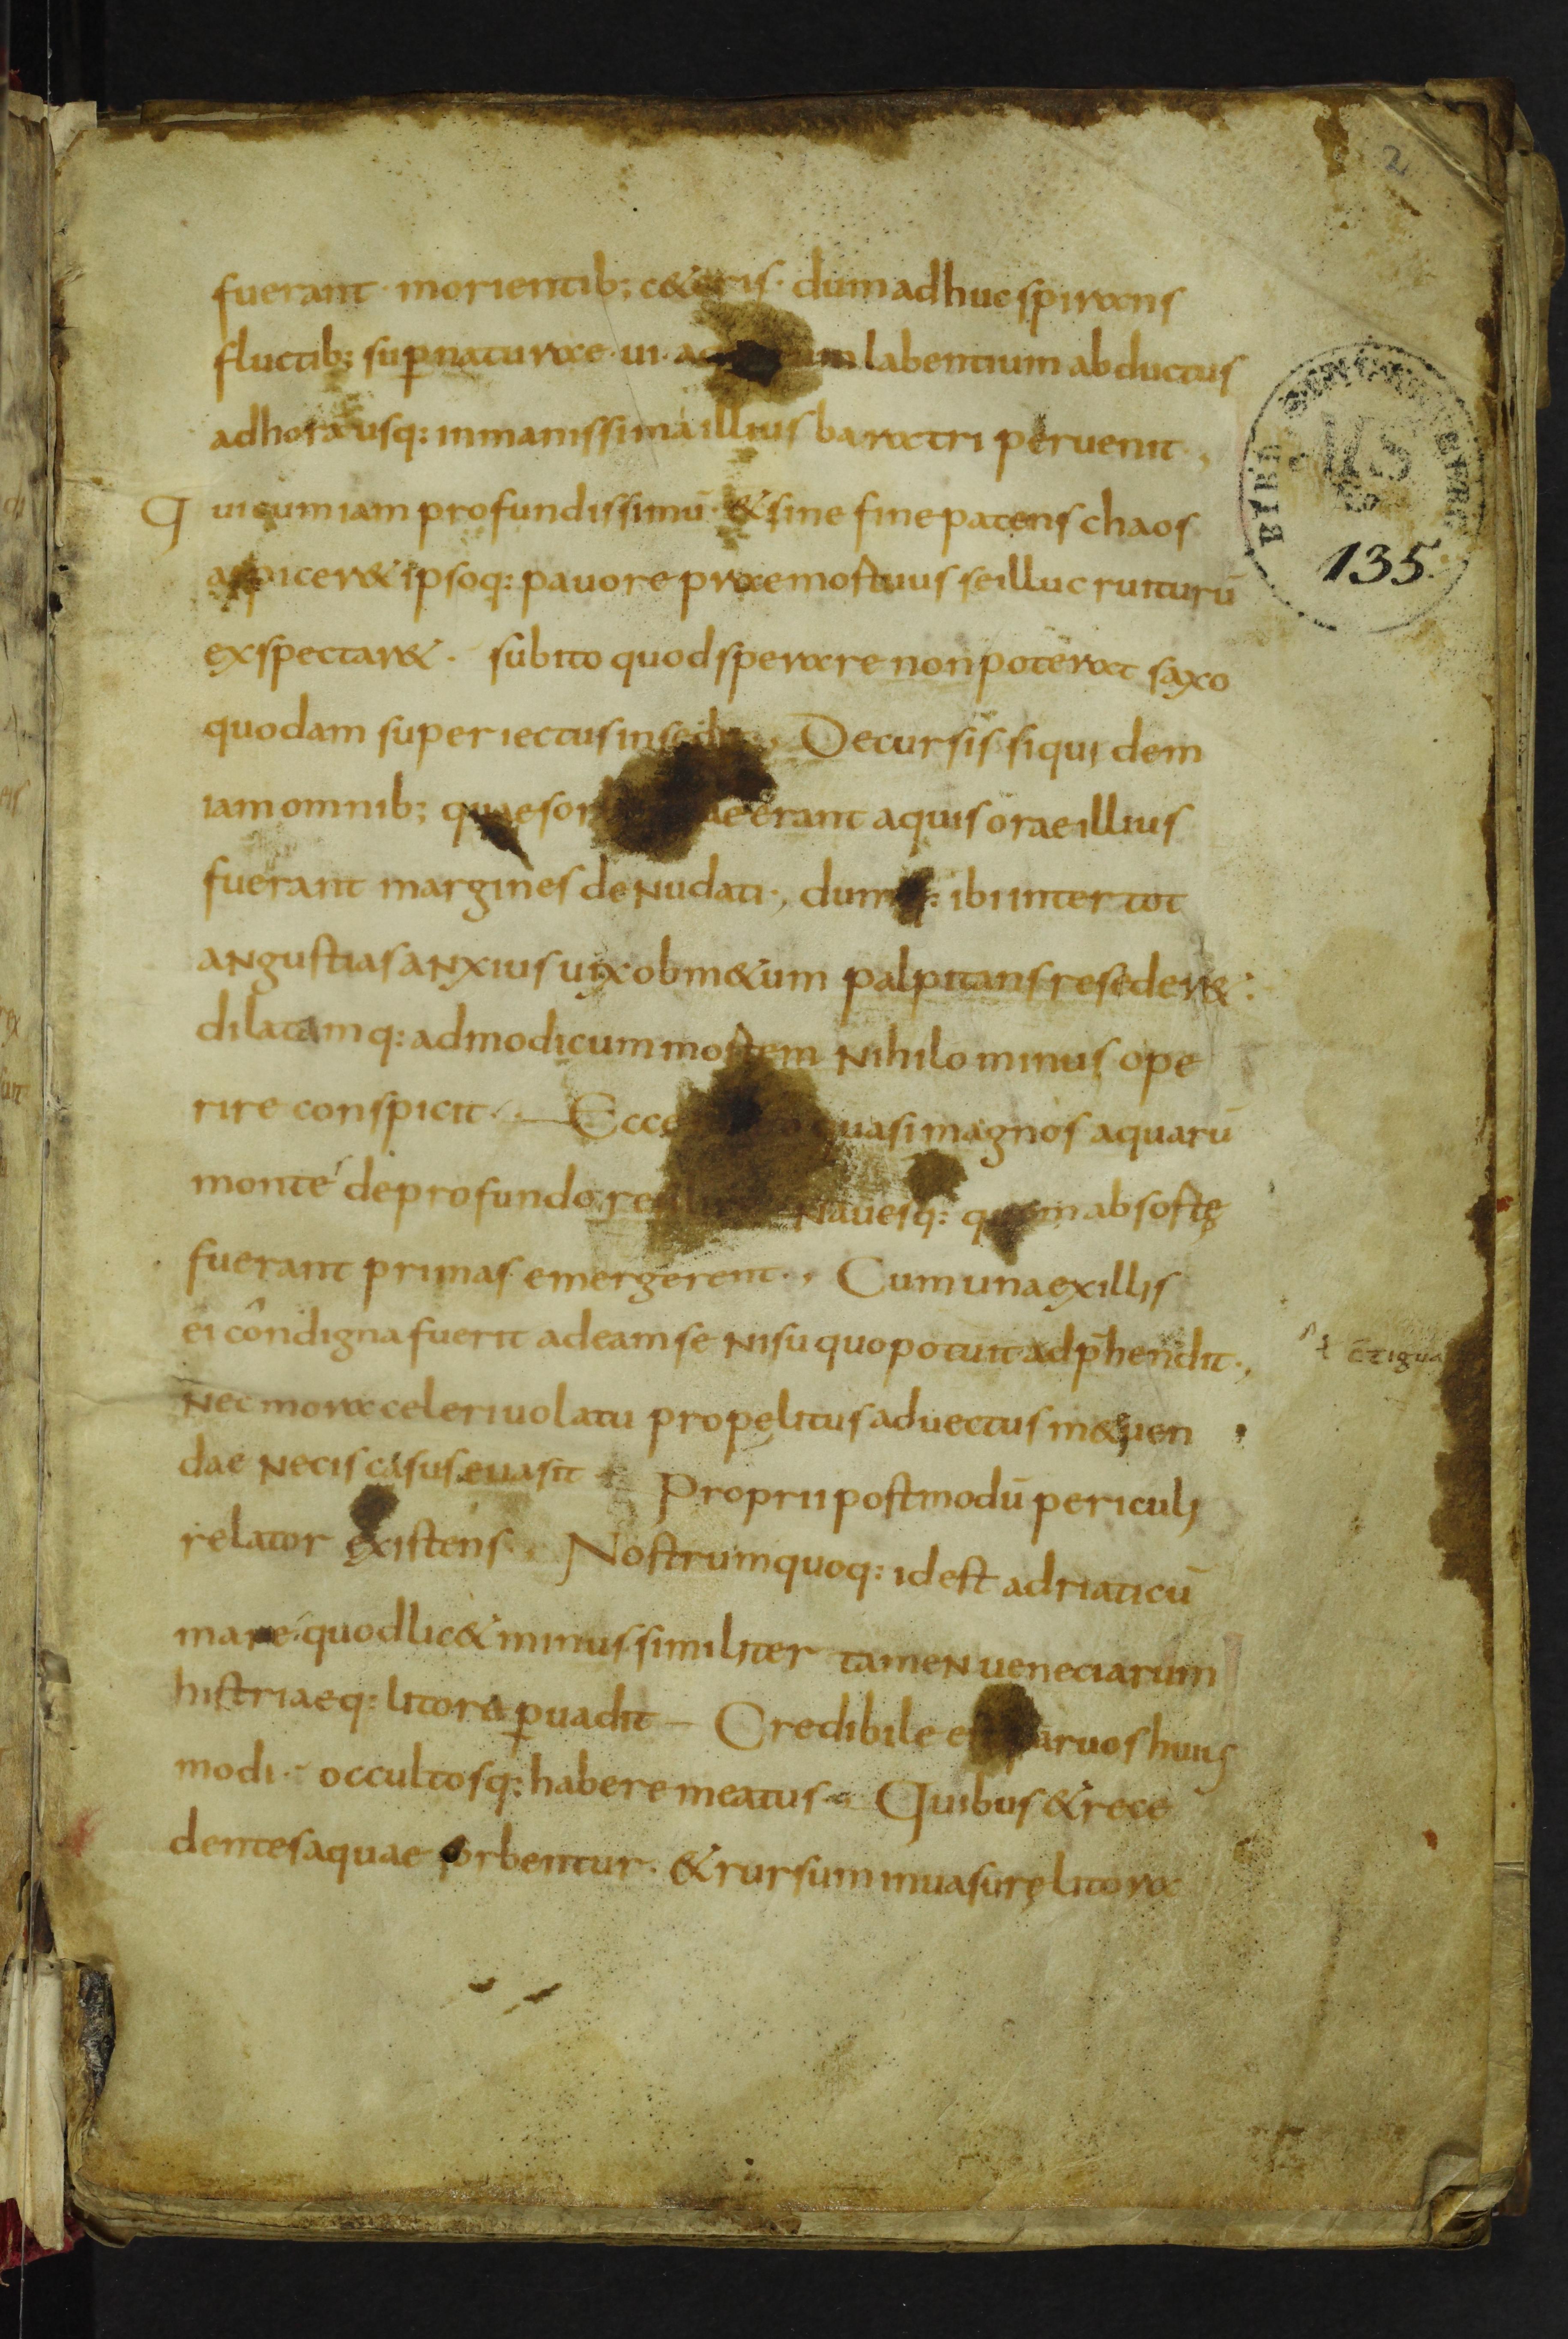 2
fuerant· morientib; c&eris· dum adhuc spirans
fluctib; sup̄naturae· ui· labentium abductus
ad hora usq: inmanissima illius baratri peruenit·,
Qui cum iam profundissimū· & sine fine patens chaos
aspicer& ipsoq: pauore praemortuus se illuc ruiturū
exspectar&· subito quod sperare non poterat saxo
quodam superiectus insedit·, Decursis siquidem
iam omnib; quae erant aquis orae illius
fuerant margines denudati·, dumq: ibi inter tot
angustias anxius uix ob m&um palpitans reseder&:
dilatamq: ad modicum mortem nihilominus ope
rire conspicit·, Ecce quasi magnos aquarū
montes de profundo Nauesq: quem absortę
fuerant primas emergerent·, Cum una ex illis
ei condigna fuerit ad eam se nisu quo potuit adp̄hendit·,
Nec mora celeri uolatu propelitus aduectus m&uen
dae necis casus euasit Proprii postmodū periculi
relator existens·, Nostrum quoq: id est adriaticū
mare· quod lic& minus· similiter tamen ueneciarum
histriaeq: litora ꝑuadit – Credibile est paruos huius
modi·· occultosq: habere meatus· Quibus & rece
dentes aquae sorbentur· & rursum inuasurę litora
ł ctigua
BIBL
MS
135.